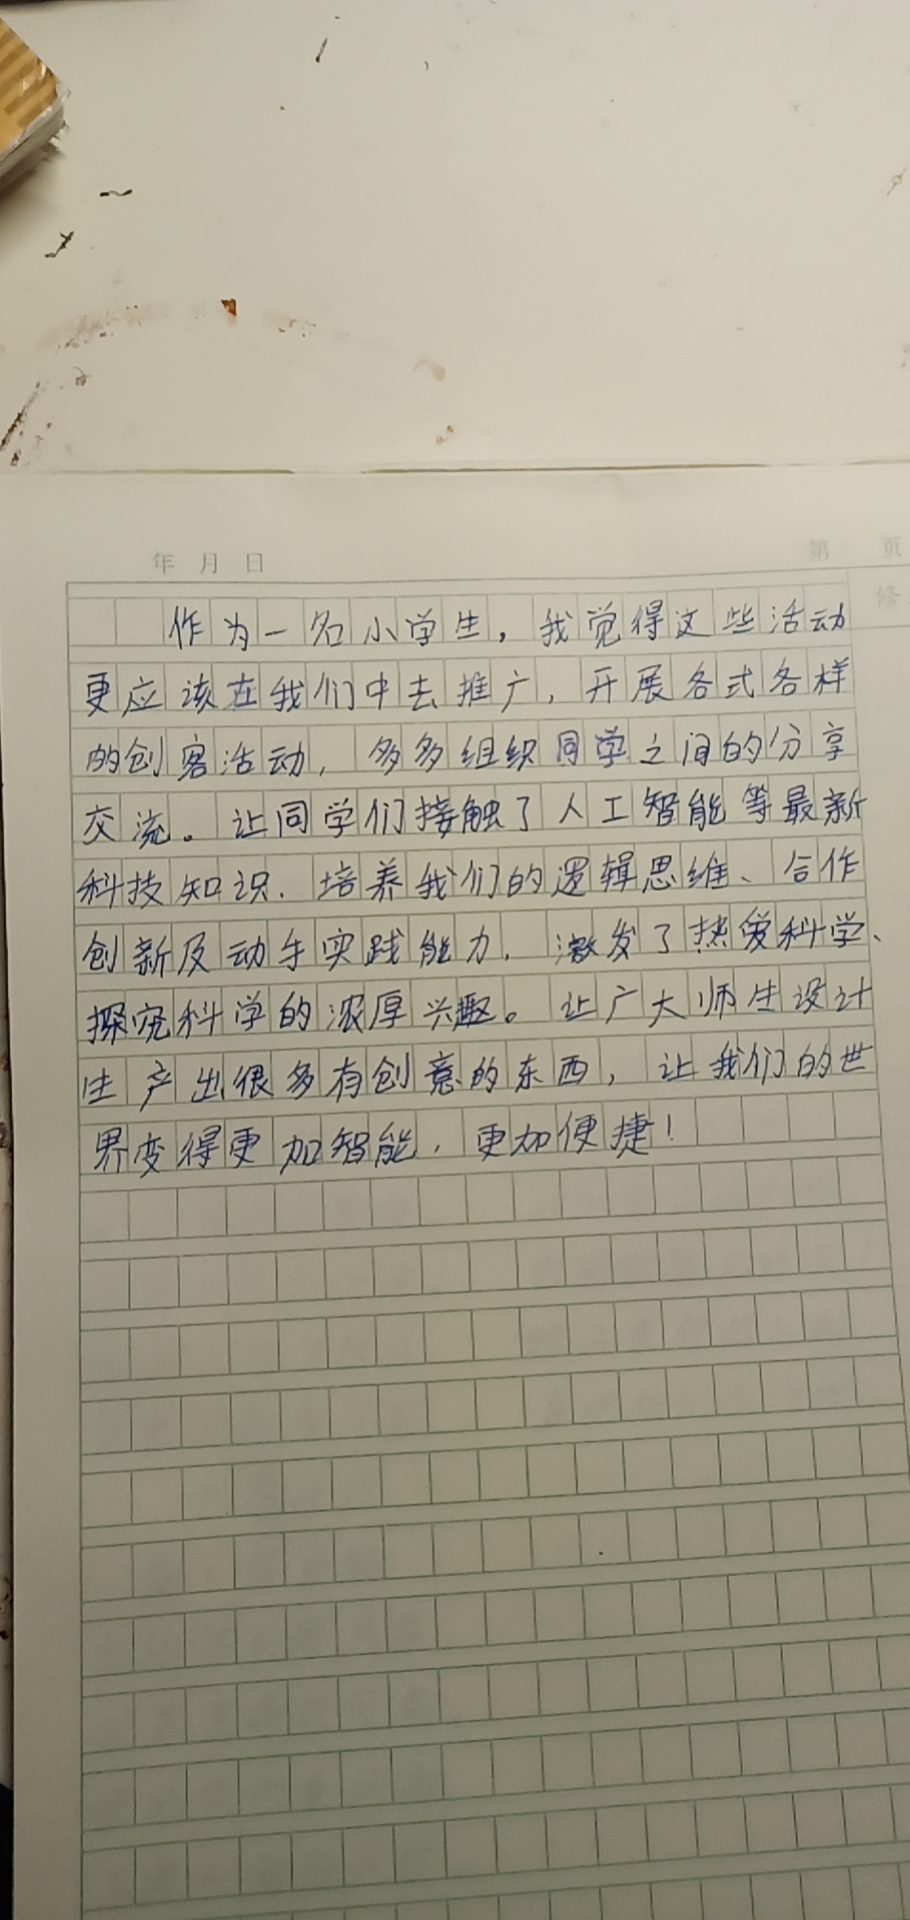 年 月 日
第 页
修
作为一名小学生，我觉得这些活动
更应该在我们中去推广，开展各式各样
的创客活动，多多组织同学之间的分享
交流。让同学们接触了人工智能等最新
科技知识，培养我们的逻辑思维、合作
创新及动手实践能力，激发了热爱科学、
探究科学的浓厚兴趣。让广大师生设计
生产出很多有创意的东西，让我们的世
界变得更加智能，更加便捷！